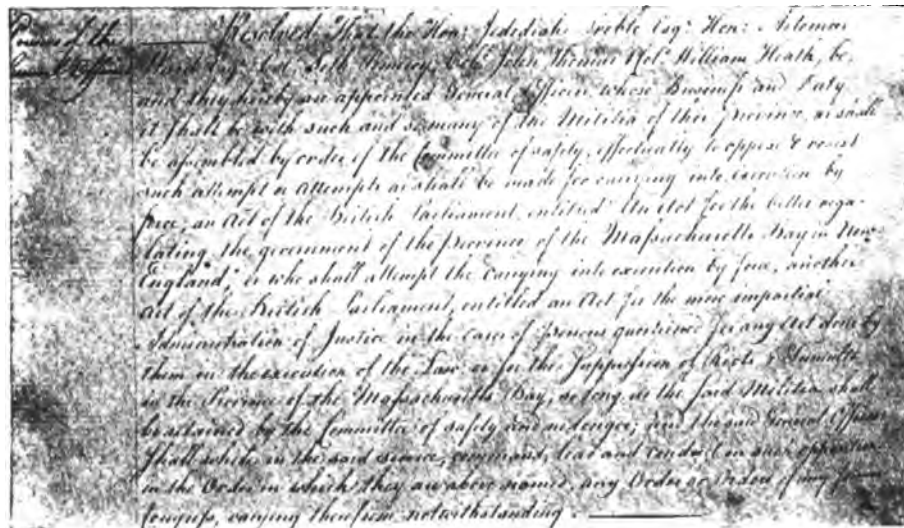 Powers of the
General Officers
Resolved, That the Hon: Jedediah Preble Esqr. Hon: Artemas
Ward Esqr. Col. Seth Pomeroy, Colo. John Thomas & Colo. William Heath, be,
and they hereby are appointed General Officers whose Business and Duty
it shall be with such and so many of the Militia of this province, as shall
be assembled by order of the Committee of safety, effectually to oppose & resist
such attempt or attempts as shall be made for carrying into execution by
force, an Act of the British Parliament, entitled An Act for the better regu-
lating the government of the province of the Massachusetts Bay in New
England; or who shall attempt the carrying into execution by force, another
Act of the British Parliament, entitled an Act for the more impartial
Administration of Justice in the cases of persons questioned for any Act done by
them in the execution of the Law, or for the Suppression of Riots & Tumults
in the Province of the Massachusetts Bay, so long as the said Militia shall
be retained by the Committee of safety and no longer; and the said General Officers
shall while in the said service, command, lead and conduct in such opposition
in the Order in which they are above named, any Order or Orders of any
Congress, varying therefrom notwithstanding.